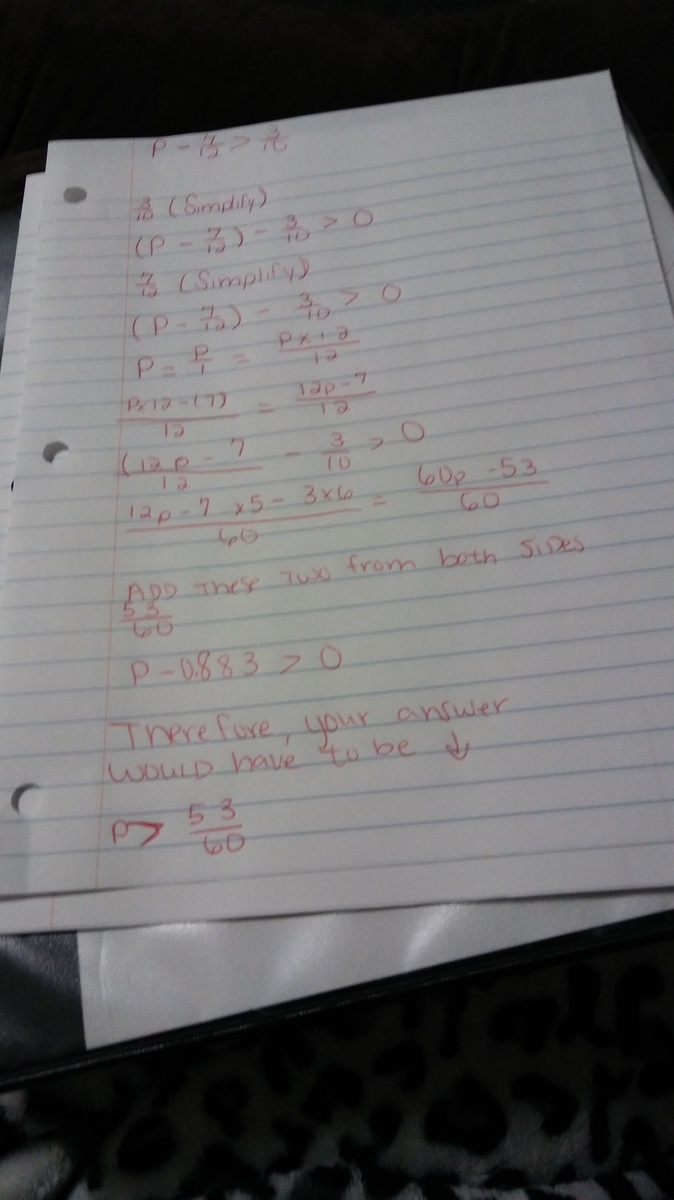 P - 7/12 > 3/10
3/10 (Simplify)
(P - 7/12) - 3/10 > 0
7/12 (Simplify)
(P - 7/12) - 3/10 > 0
P = P/1 = P×12/12
P×12-(7)/12 = 12p-7/12
(12p - 7/12 - 3/10 > 0
12p-7 ×5 - 3×6/60 = 60p -53/60
ADD These Two from both SiDes
53/60
P - 0.883 > 0
Therefore, your answer
WOULD have to be ↓
P > 53/60